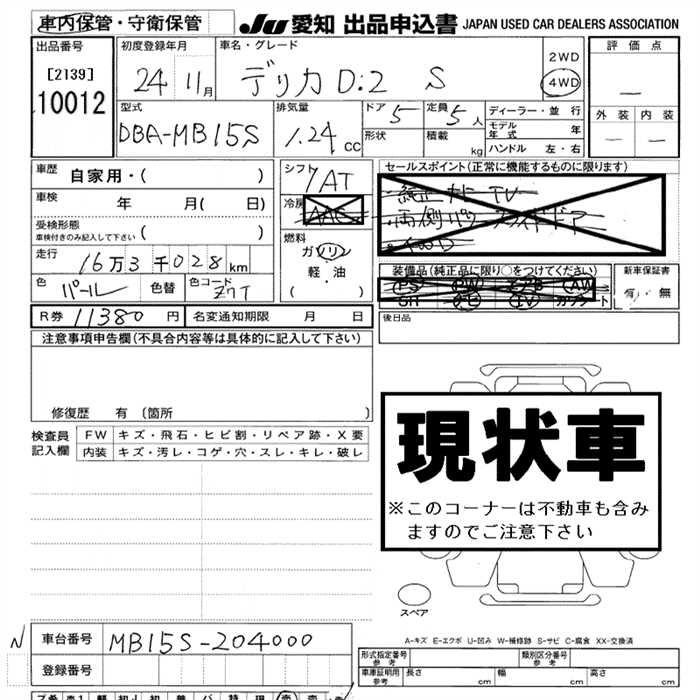 車内保管・守衛保管 JU 愛知 出品申込書 JAPAN USED CAR DEALERS ASSOCIATION
出品番号 初度登録年月 車名・グレード 2WD 評価点
[2139] 24 11月 デリカD:2 S 4WD —
10012 型式 排気量 ドア 5 定員 5人 ディーラー・並行 外装 内装
DBA-MB15S 1.24cc 形状 積載 kg モデル年式 年 — —
ハンドル 左・右
車歴 自家用・( ) シフト 1AT セールスポイント(正常に機能するものに限ります)
車検 年 月( 日) 冷房 AAC 純正ナビ TV
受検形態 ( ) 両側パワースライドドア
車検付きのみ記入して下さい 燃料
走行 16万3千028km ガソリン 装備品(純正品に限り○をつけてください) 新車保証書
色 パール 色替 色コード Z7T 軽・油 PS PW AB AW 有・無
( ) SR ナビ TV カワシート
R券 11380円 名変通知期限 月 日 後日品
注意事項申告欄(不具合内容等は具体的に記入して下さい)
修復歴 有 〔箇所 〕
検査員 FW キズ・飛石・ヒビ割・リペア跡・X要
記入欄 内装 キズ・汚レ・コゲ・穴・スレ・キレ・破レ
現状車
※このコーナーは不動車も含み
ますのでご注意下さい
スペア
A-キズ E-エクボ U-凹み W-補修跡 S-サビ C-腐食 XX-交換済
N 車台番号 MB15S-204000
登録番号
形式指定番号 参考 類別区分番号 参考
車庫証明用 参考 長さ cm 幅 cm 高さ cm